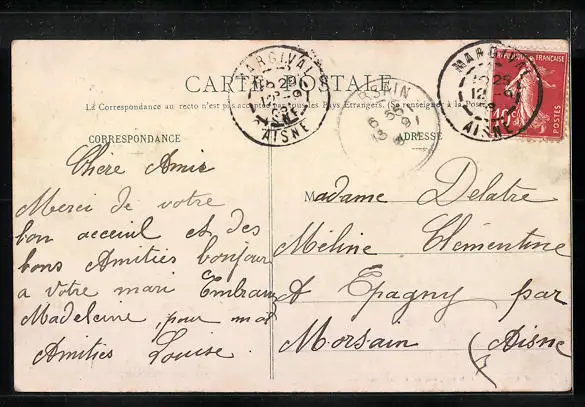 CARTE POSTALE
La Correspondance au recto n'est pas acceptée par tous les Pays Etrangers. (Se renseigner à la Poste)
CORRESPONDANCE
ADRESSE
MARGIVAL
AISNE
MARGIVAL
12
AISNE
RÉPUBLIQUE FRANÇAISE
10c
POSTES
Chère Amie
Merci de votre
bon acceuil et des
bons Amitiés bonjour
a votre mari Embrassez
Madeleine, pour moi
Amitiés Louise
Madame Delatre
Méline Clémentine
A Epagny par
Morsain (Aisne